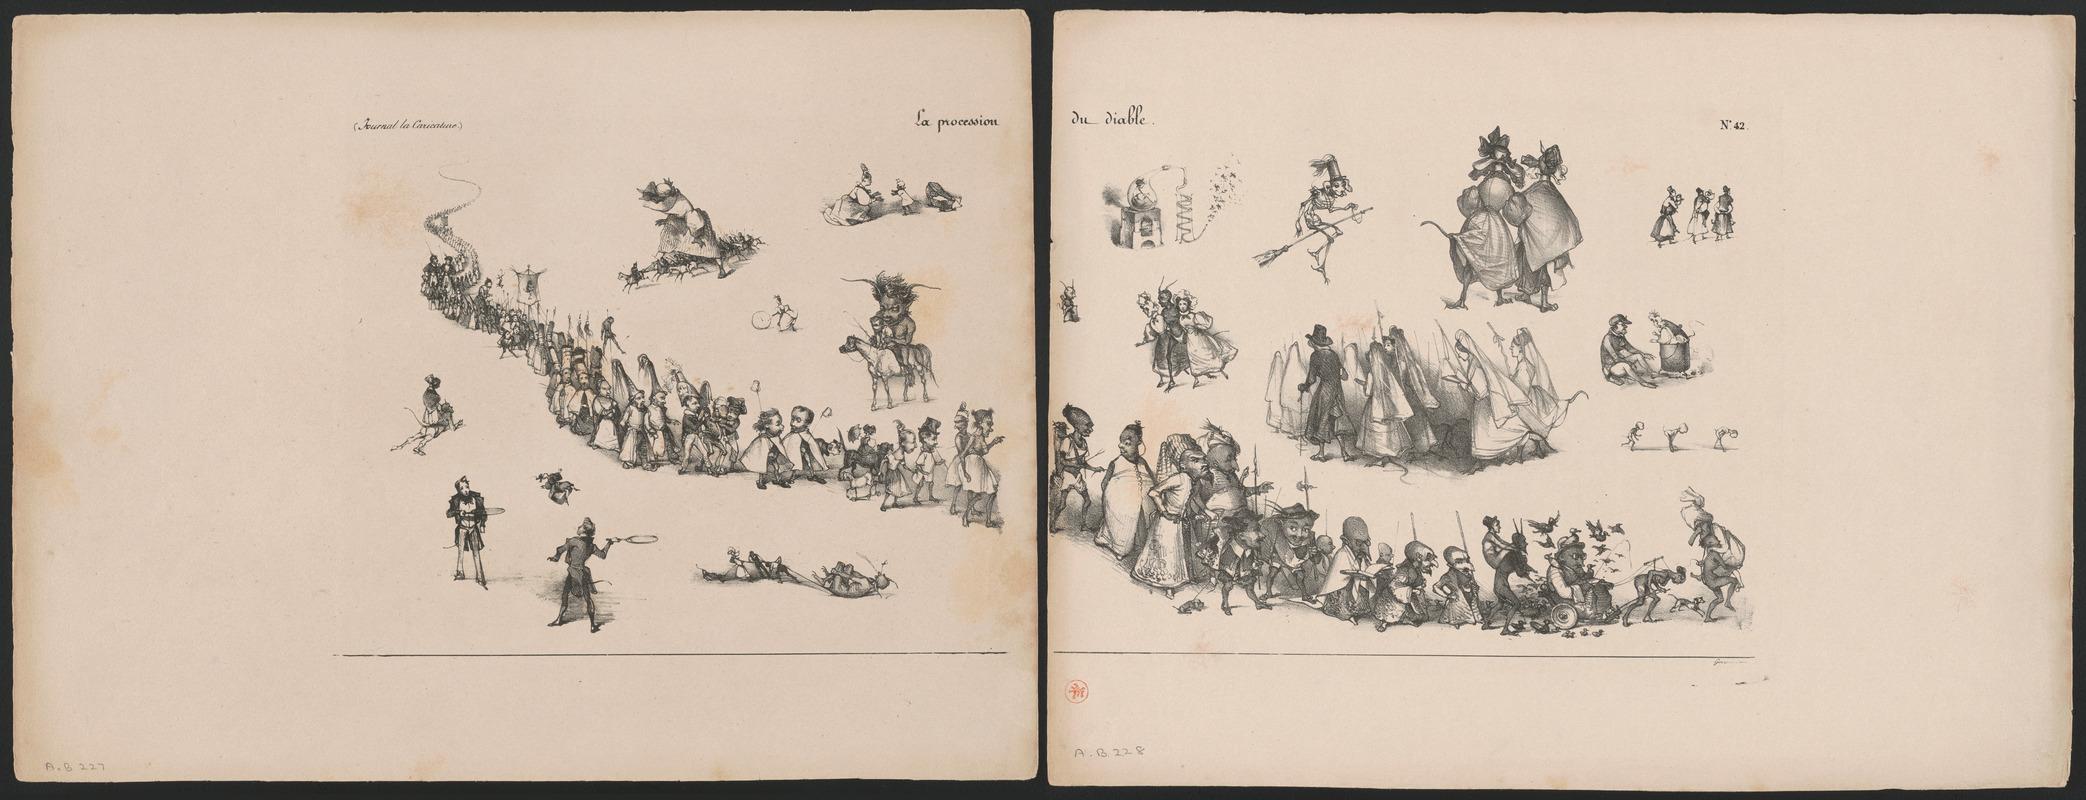 (Journal la Caricature)
La procession
du diable.
Nº 42.
A.B 227
A.B.228